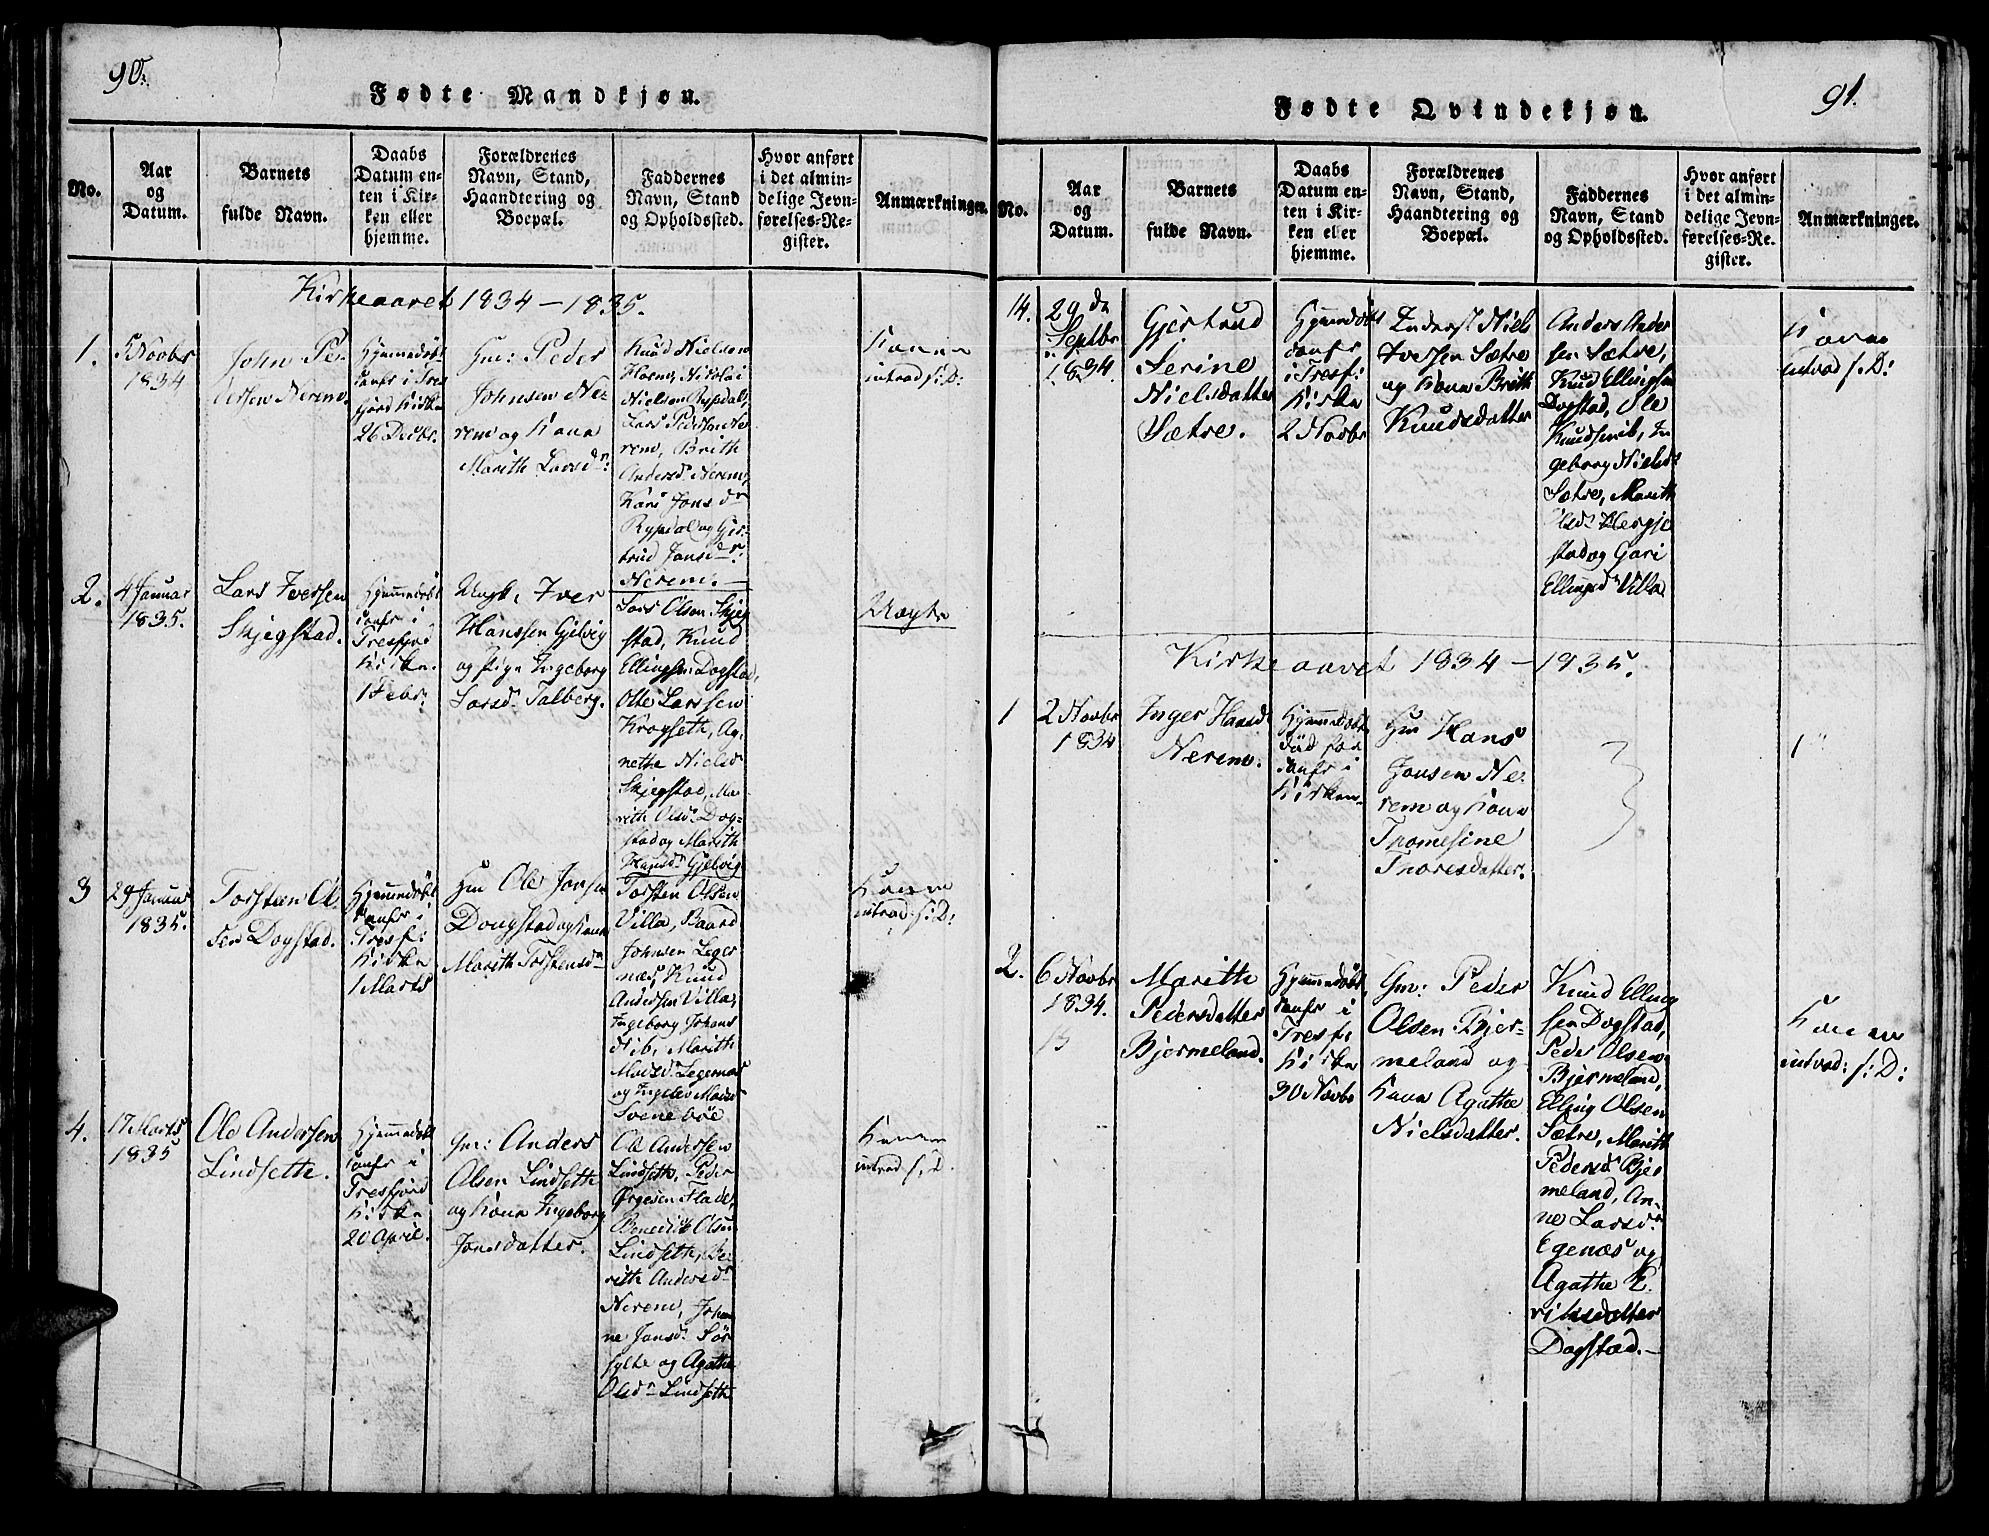 90.
Fødte Mandkjøn.
No.
Aar
og
Datum.
Barnets
fulde Navn.
Daabs
Datum en-
ten i Kir-
ken eller
hjemme.
Forældrenes
Navn, Stand,
Haandtering og
Boepæl.
Faddernes
Navn, Stand
og Opholdssted.
Hvor anført
i det almin-
delige Jevn-
førelses-Re-
gister.
Anmærkninger.
Kirkeaaret 1834–1835.
1.
5 Novbr
1834
John Pe-
dersen Nerem.
Hjemmedøbt
Kirke
26 Decbr.
Gm: Peder
Johnsen Ne-
rem og Kone
Marith Larsdr.
Knud Nielsen
Nicolai
Nielsen Rypdal,
Lars Pedersen Ne-
rem, Brith
Andersd. Nerem,
Kari Jons dr
Rypdal og Gjer-
trud Jonsdr.
Nerem.
Konen
introd. s: D:
2.
4 Januar
1835.
Lars Iversen
Skjegstad.
Hjemmedøbt
i
Tresfjord
Kirke
1 Febr.
Ungk. Iver
Hanssen Gjelvig
og Pige Ingeborg
Larsd. Talberg.
Lars Olsen Skjeg-
stad, Knud
Ellingsen Dogstad,
Larssen
Krogseth, An-
nethe Nielsd
Skjegstad, Ma-
rith Olsd. Dog-
stad og Marith
Hansd. Gjelvig
Uægte
3
29 Januar
1835.
Torsten Ol-
sen Dogstad.
Hjemmedøbt
i
Tresf:
Kirke
1 Marts
Gm Ole Jonsen
Dougstad og Kone
Marith Torstensdr
Torsten Olsen
Villa, Baard
Johnsen Leger-
næs, Knud
Andersen Villa,
Ingeborg Johans
Nib, Marith
Madsd. Legernæs
og Madsd
Svenebøe
Konen
introd. s: D:
4.
17 Marts
1835
Ole Andersen
Lindsethe.
Hjemmedøbt
i
Tresfjord
Kirke
20 April.
Gm: Anders
Olsen Lindsethe
og Kone Ingeborg
Jonsdatter.
Ole Andersen
Lindsethe, Peder
Ørgesen Flade,
Benedict Olsen
Lindseth, Be-
rith Andersdr
Nerem, Johan-
ne Jonsd. Sør-
sylte og Agathe
Olsdr Lindseth
Konen
introd s: D.
91.
Fødte Qvindekjøn.
No.
Aar
og
Datum.
Barnets
fulde Navn.
Daabs
Datum en-
ten i Kir-
ken eller
hjemme.
Forældrenes
Navn, Stand,
Haandtering og
Boepæl.
Faddernes
Navn, Stand
og Opholdssted.
Hvor anført
i det almin-
delige Jevn-
førelses-Re-
gister.
Anmærkninger.
14.
29 de
Septbr
1834.
Gjertrud
Serine
Nielsdatter
Sætre.
Hjemmedøbt
i Tresf:
Kirke
2 Novbr
Inderst Niels
Iversen Sætre
og Kone Brith
Knudsdatter
Anders Ander-
sen Sætre,
Knud Ellingsen
Dogstad, Ole
Knudsen Nib, In-
geborg Nielsd
Sætre, Marith
Olsd.
stad og Gori
Ellingsd Villa
Konen
introd s: D:
Kirkeaaret 1834–1835.
1
2 Novbr
1834
Inger Hansd
Nerem.
Hjemmedøbt
død før
i
Kirken
Gm Hans
Jonsen Ne-
rem og Kone
Thomesine
Thoresdatter.
2.
6 Novbr
1834.
Marith
Pedersdatter
Bjermeland.
Hjemmedøbt,
i
Tresf:
Kirke
30 Novbr
Gm: Peder
Olsen Bjer-
meland og
Kone Agathe
Nielsdatter.
Knud Elling-
sen Dogstad,
Peder Olsen
Bjermeland,
Elling Olsen
Sætre, Marith
Pedersd Bjer-
meland, An-
ne Larsdr
Egenæs og
Agathe E-
riksdatter
Dogstad.
Konen
introd: s: D: